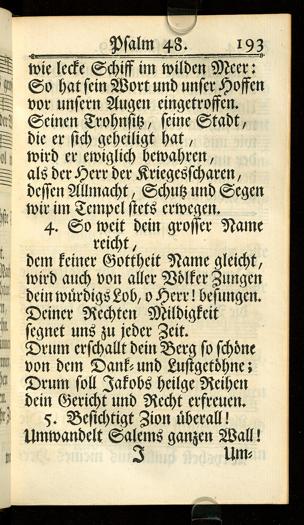 Psalm 48. 193
wie lecke Schiff im wilden Meer:
So hat sein Wort und unser Hoffen
vor unsern Augen eingetroffen.
Seinen Trohnsitz, seine Stadt,
die er sich geheiligt hat,
wird er ewiglich bewahren,
als der Herr der Kriegesscharen,
dessen Allmacht, Schutz und Segen
wir im Tempel stets erwegen.
4. So weit dein grosser Name
reicht,
dem keiner Gottheit Name gleicht,
wird auch von aller Völker Zungen
dein würdigs Lob, o Herr! besungen.
Deiner Rechten Mildigkeit
segnet uns zu jeder Zeit.
Drum erschallt dein Berg so schöne
von dem Dank- und Lustgetöhne;
Drum soll Jakobs heilge Reihen
dein Gericht und Recht erfreuen.
5. Besichtigt Zion überall!
Umwandelt Salems ganzen Wall!
J Um-